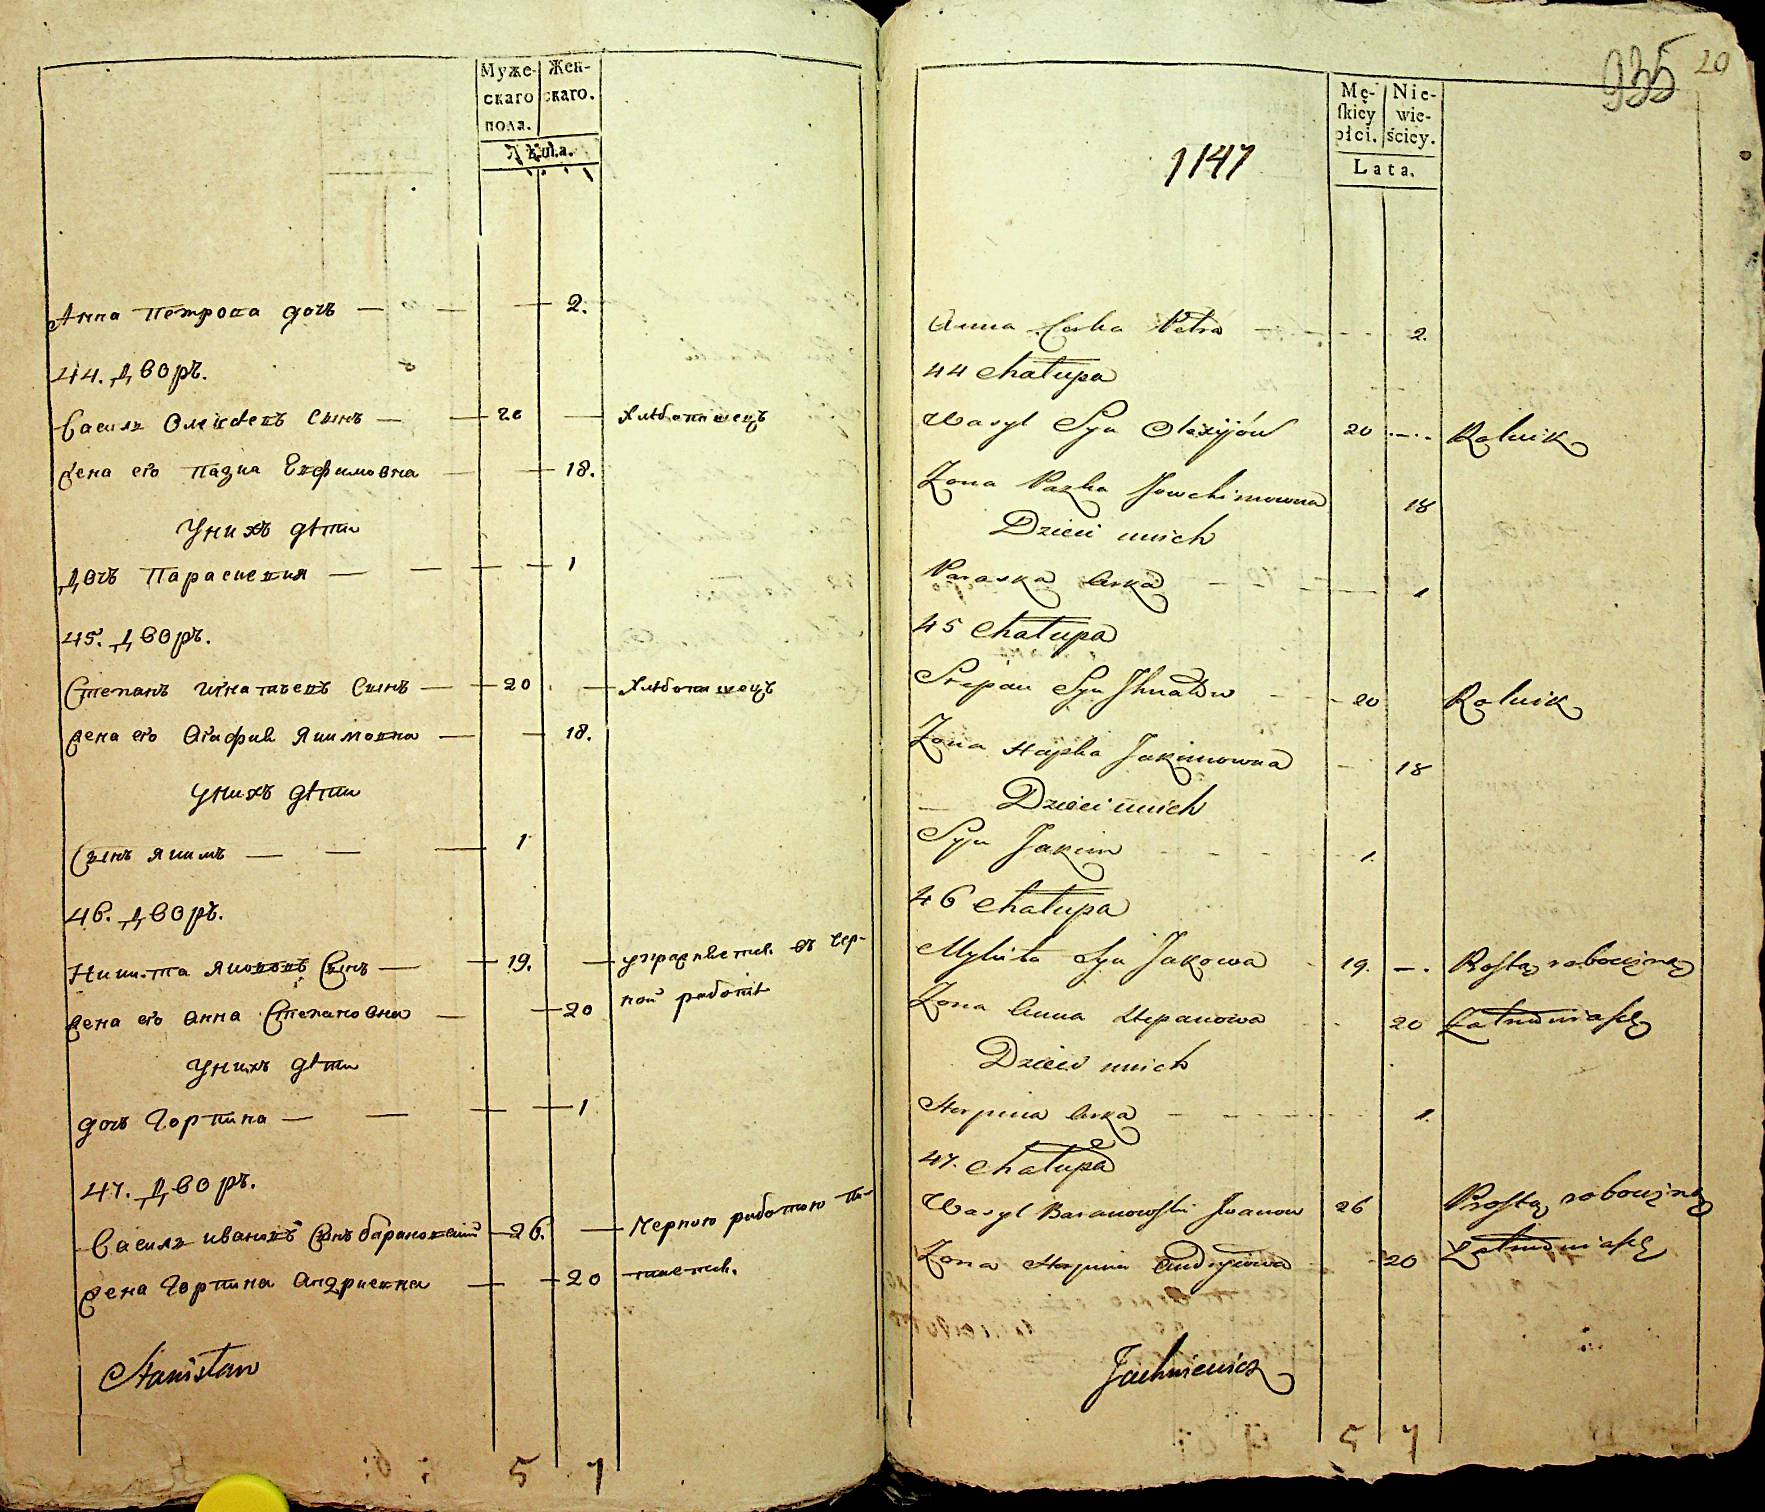 Муже- Жен-
скаго скаго.
пола.
Анна Петрова дочь — — — 2.
44. Дворъ.
Василь Олексѣевъ Сынъ — — 20 — Хлѣбопашецъ
Жена его Пазна Евфимовна — — 18.
У нихъ дѣти
Дочь Парасневия — — — — 1
45. Дворъ.
Степанъ Игнатьевъ Сынъ — — 20 — Хлѣбопашецъ
Жена его Агафия Якимовна — — 18.
У нихъ дѣти
Сынъ Якимъ — — — 1
46. Дворъ.
Никита Якововъ Сынъ — — 19. — упражняется въ чер-
Жена его Анна Степановна — — 20 ной работѣ
У нихъ дѣти
дочь Горпина — — — — 1
47. Дворъ.
Василь Ивановъ Сынъ Барановский — 26. — Черною работою пи-
Жена Горпина Андриевна — — 20 тается.
Stanisław
5 7
935 20
Mę- Nie-
ſkiey wie-
płci. ściey.
Lata.
1147
Anna Corka Petra — 2.
44 Chałupa
Wasyl Syn Olexijów 20 — Rolnik
Zona Pazka Jowchimowna 18
Dzieci u nich
Paraska Corka — 1
45 Chałupa
Stepan Syn Ihnatów — 20 Rolnik
Zona Hapka Jakimowna — 18
Dzieci u nich
Syn Jakim — 1.
46 Chałupa
Mykita Syn Jakowa 19. — Prostą robocizną
Zona Anna Stepanowa 20 Zatrudnia się
Dzieci u nich
Horpina Corka — 1.
47. Chałupa
Wasyl Baranowski Iwanow 26 Prostą robocizną
Zona Horpina Andryiowa 20 Zatrudnia się
Jachniewicz
5 7